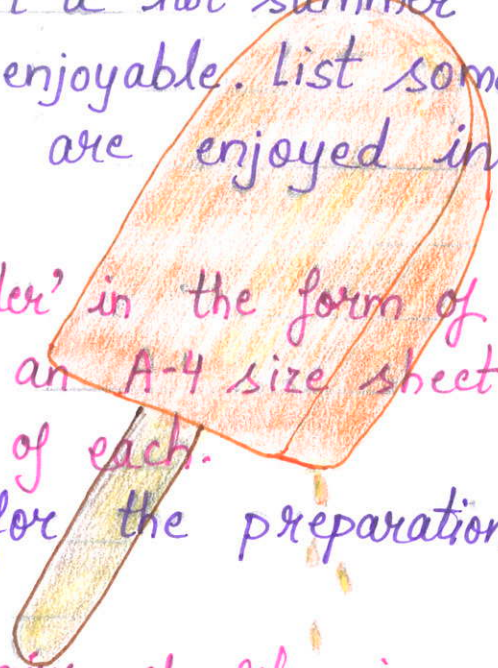 a hot summer
enjoyable. List some
are enjoyed in
in the form of
an A-4 size sheet
of each.
for the preparation